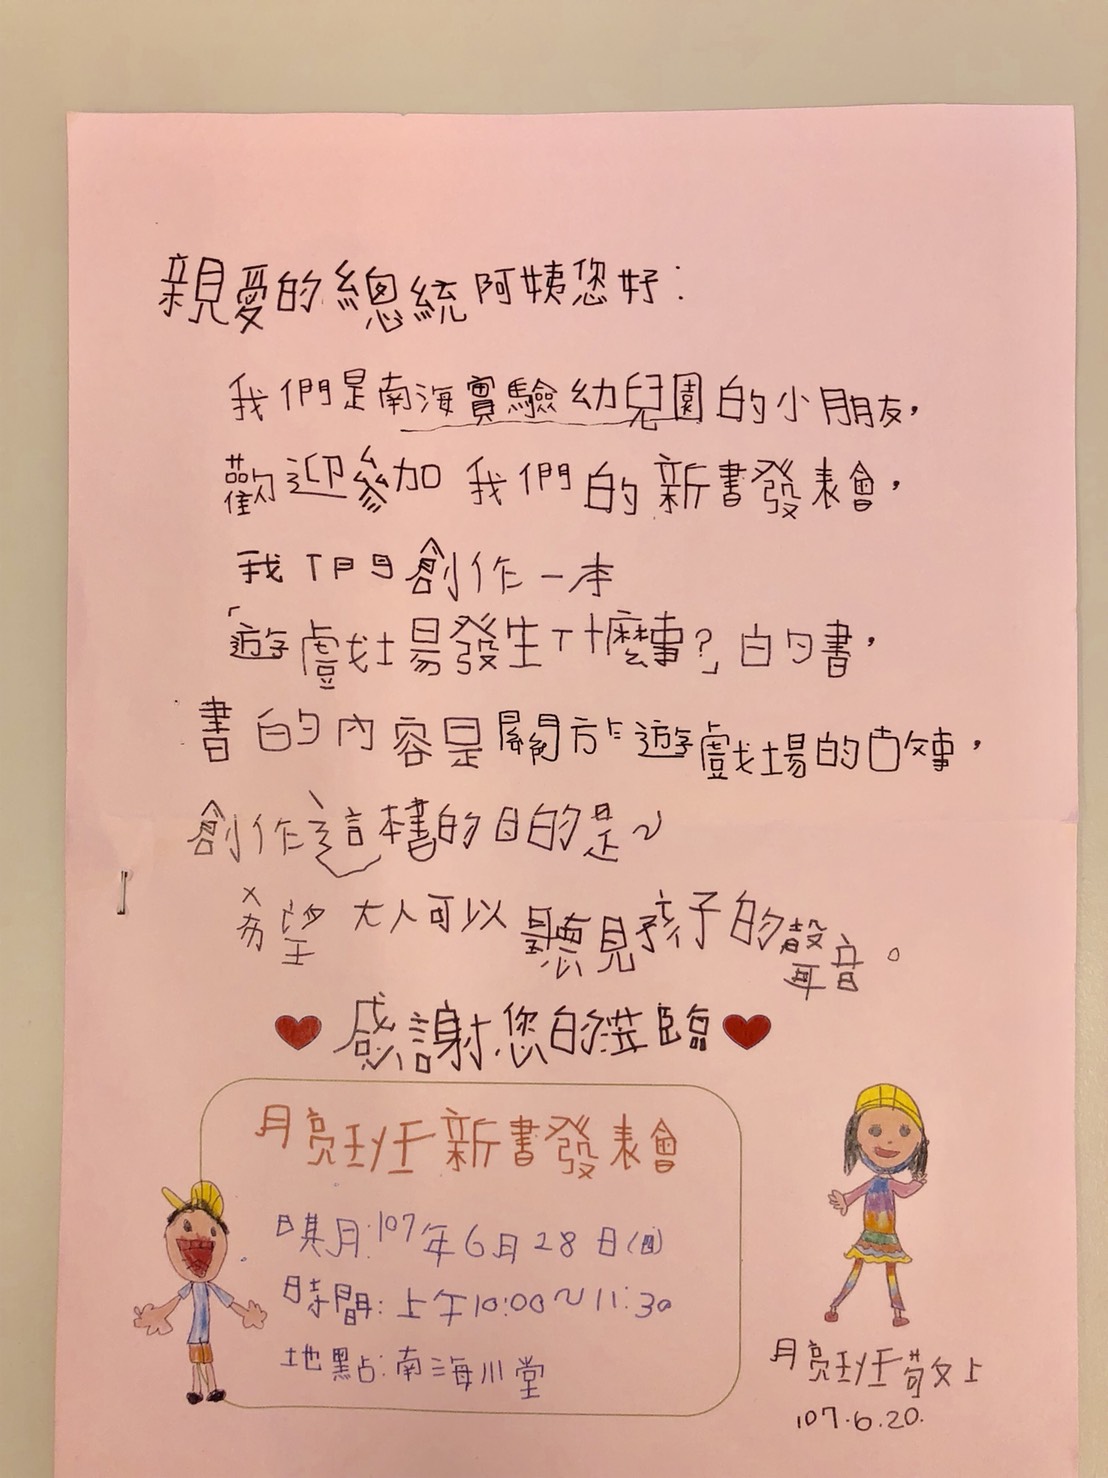 親愛的總統阿姨您好：
我們是南海實驗幼兒園的小朋友，
歡迎參加我們的新書發表會，
我們創作一本
「遊戲場發生什麼事？」的書，
書的內容是關於遊戲場的故事，
創作這本書的目的是～
希望大人可以聽見孩子的聲音。
感謝您的蒞臨
月亮班新書發表會
日期：107年6月28日(四)
時間：上午10:00～11:30
地點：南海川堂
月亮班敬上
107.6.20.